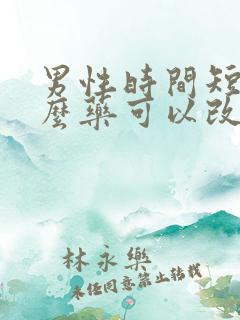 男性時間短
麼藥可以改
林永樂
未經同意禁止轉載